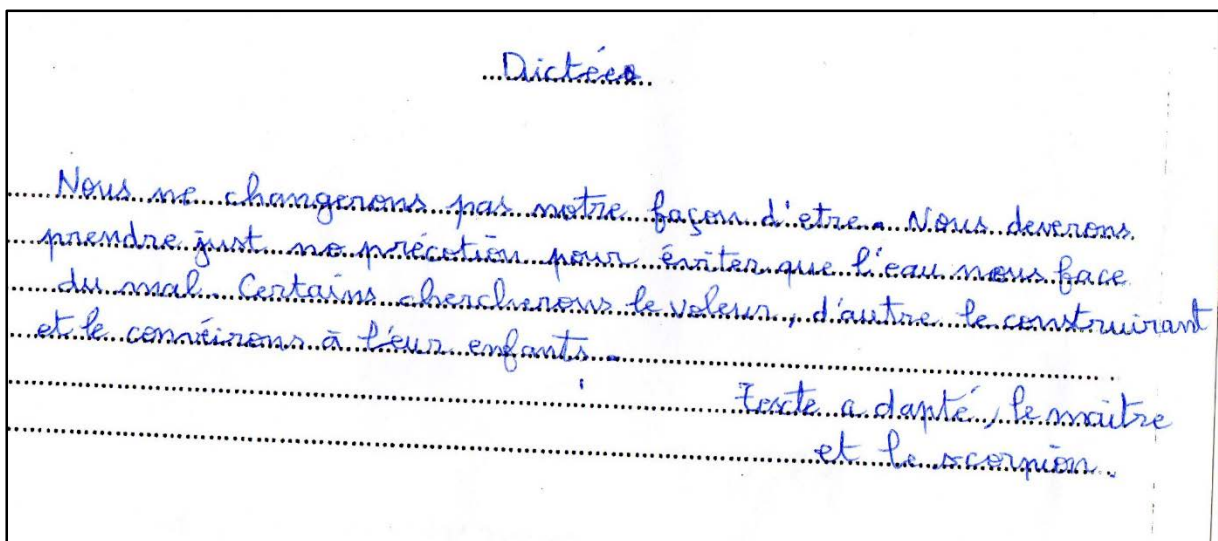 Dictées
Nous ne changerons pas notre façon d'etre. Nous deverons
prendre just no précotion pour éviter que l'eau nous face
du mal. Certains chercherons le voleur, d'autre le construirant
et le convéirons à l'eur enfants.
Texte a dapté, le maître
et le scorpion.